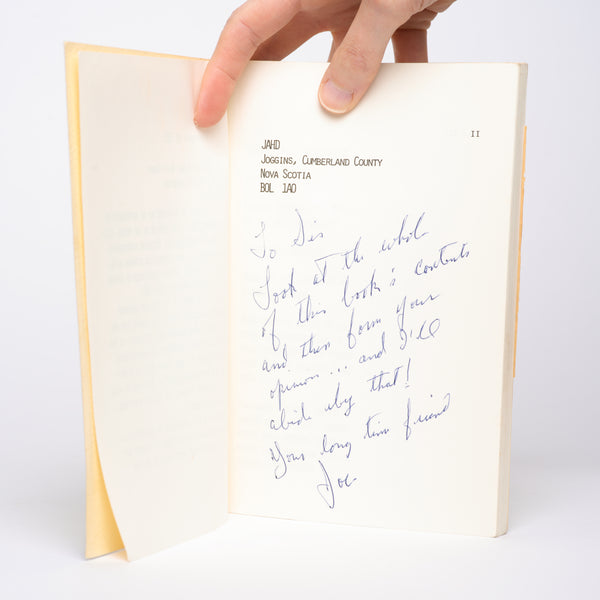 II
JAHD
Joggins, Cumberland County
Nova Scotia
BOL 1AO
To Sis
Look at the whole
of this book's contents
and then form your
opinion... and I'll
abide by that!
Your long time friend
Joe